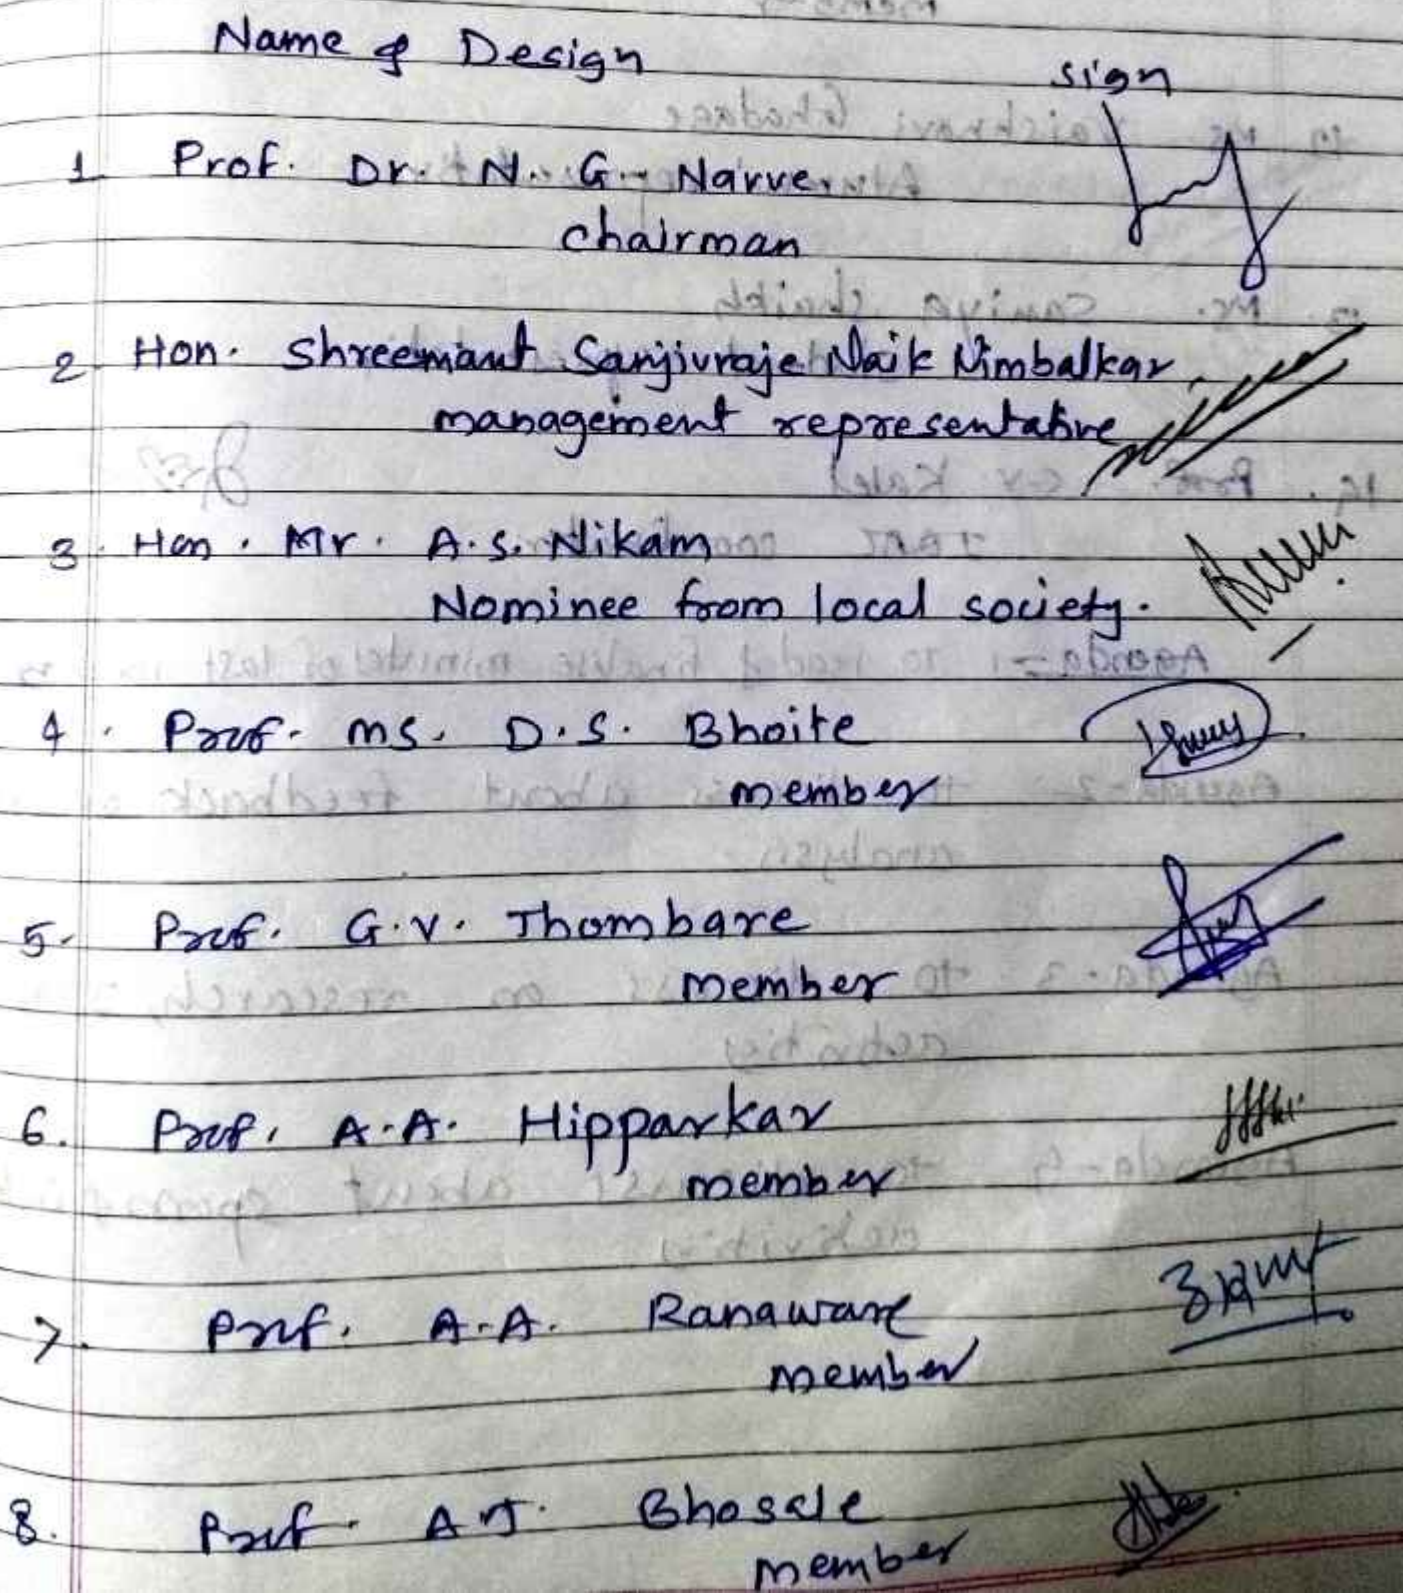 Name & Design
sign
1 Prof. Dr. N. G. Narve.
chairman
2 Hon. Shreemant Sanjivraje Naik Nimbalkar.
management representative
3. Hon. Mr. A.S. Nikam
Nominee from local society.
4. Prof. ms. D.S. Bhoite
member
5. Prof. G.V. Thombare
member
6. Prof. A.A. Hipparkar
member
7. Prof. A.A. Ranaware
member
8. Prof. A J. Bhosale
member